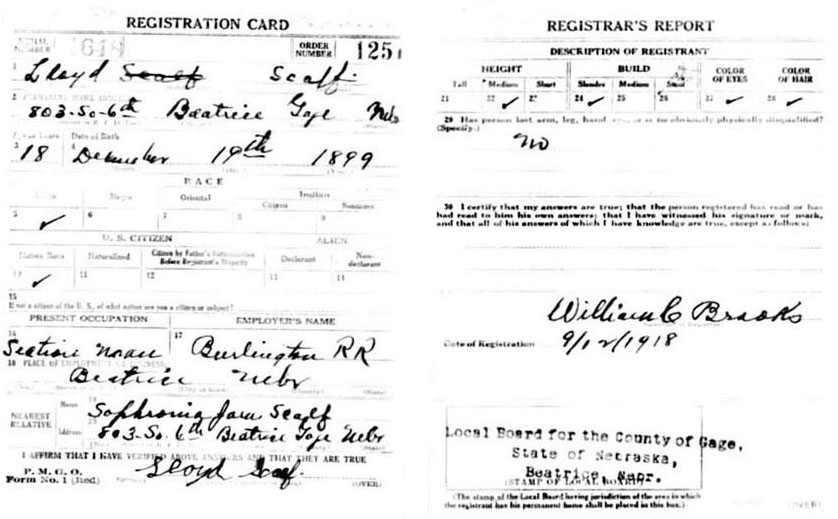 REGISTRATION CARD
SERIAL NUMBER 1644 ORDER NUMBER 1251
1 Lloyd Scalf Scalf
2 PERMANENT HOME ADDRESS
803-So-6th Beatrice Gage Nebr
Age in Years Date of Birth
3 18 4 December 19th 1899
RACE
White Negro Oriental Indian
Citizen Noncitizen
5 ✓ 6 7 8 9
U. S. CITIZEN ALIEN
Native Born Naturalized Citizen by Father's Naturalization Before Registrant's Majority Declarant Non-declarant
10 ✓ 11 12 13 14
15
If not a citizen of the U. S., of what nation are you a citizen or subject?
PRESENT OCCUPATION EMPLOYER'S NAME
16 Section 17 Burlington RR
18 PLACE OF EMPLOYMENT OR BUSINESS
Beatrice Nebr
NEAREST RELATIVE Name 19 Scalf
Address 20 803-So. 6th Beatrice Gage Nebr
I AFFIRM THAT I HAVE VERIFIED ABOVE ANSWERS AND THAT THEY ARE TRUE
P. M. G. O.
Form No. 1 (Red) Lloyd Scalf (OVER)
REGISTRAR'S REPORT
DESCRIPTION OF REGISTRANT
HEIGHT BUILD COLOR OF EYES COLOR OF HAIR
Tall Medium Short Slender Medium Stout
21 22 ✓ 23 24 ✓ 25 26 27 ✓ 28 ✓
29 Has person lost arm, leg, hand, eye, or is he obviously physically disqualified?
(Specify.)
No
30 I certify that my answers are true; that the person registered has read or has
had read to him his own answers; that I have witnessed his signature or mark,
and that all of his answers of which I have knowledge are true, except as follows:
William C Brooks
Date of Registration 9/12/1918
Local Board for the County of Gage,
State of Netraska,
Beatrice, Nebr.
(STAMP OF LOCAL BOARD)
(The stamp of the Local Board having jurisdiction of the area in which
the registrant has his permanent home shall be placed in this box.) (OVER)